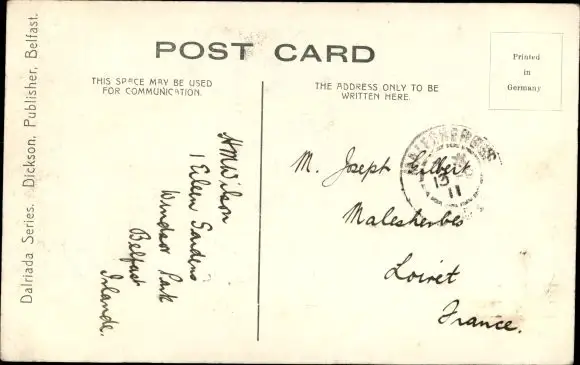 Dalriada Series. Dickson, Publisher, Belfast.
POST CARD
THIS SPACE MAY BE USED
FOR COMMUNICATION.
THE ADDRESS ONLY TO BE
WRITTEN HERE.
Printed
in
Germany
HMWilson
1 Eileen Gardens
Windsor Park
Belfast
Irlande.
M. Joseph Gilbert
Malesherbes
Loiret
France.
MALESHERBES
13
11